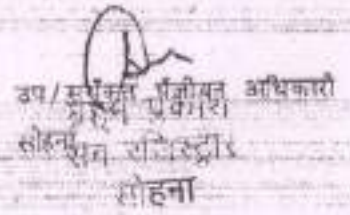 उप/सयुंक्त पंजीयन अधिकारी
सोहना
सब रजिस्ट्रार
सोहना